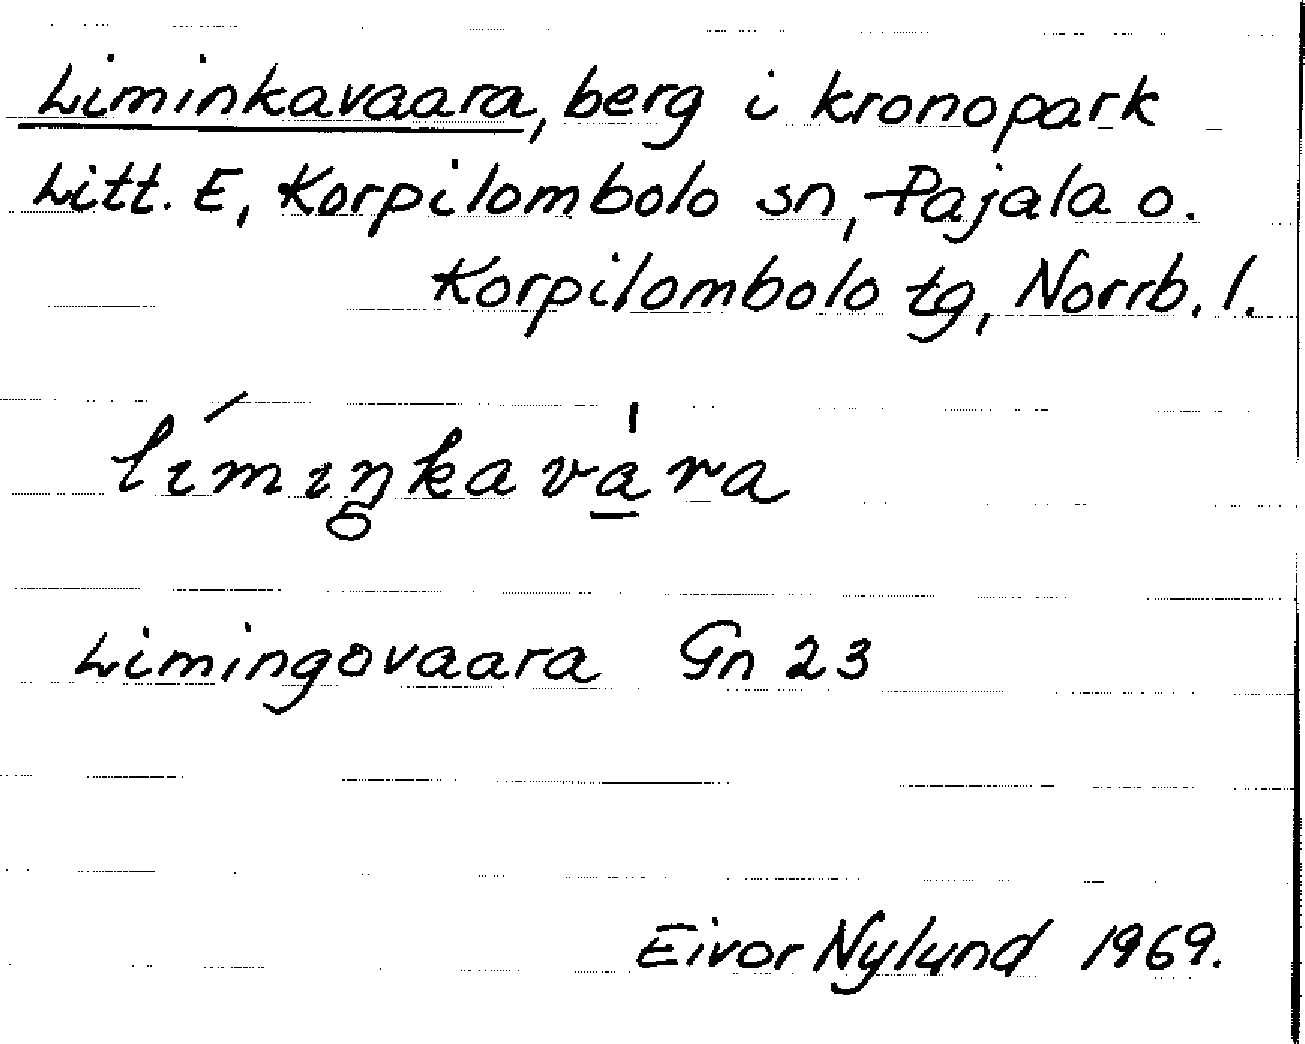 Liminkavaara, berg i kronopark
Litt. E, Korpilombolo sn, Pajala o.
Korpilombolo tg, Norrb. l.
lı́mıŋ̥kava̱̍ra
Limingovaara Gn 23
Eivor Nylund 1969.